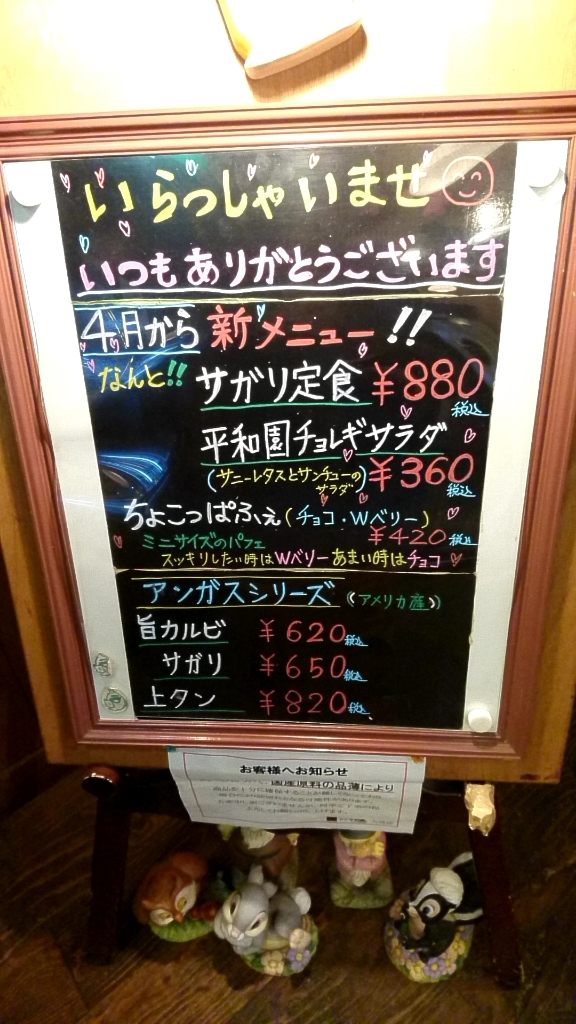 いらっしゃいませ
いつもありがとうございます
4月から 新メニュー!!
なんと!! サガリ定食 ¥880 税込
平和園チョレギサラダ
(サニーレタスとサンチューの サラダ) ¥360 税込
ちょこっぱふぇ(チョコ・Wベリー)
ミニサイズのパフェ ¥420 税込
スッキリしたい時はWベリー あまい時はチョコ
アンガスシリーズ (アメリカ産)
旨カルビ ¥620 税込
サガリ ¥650 税込
上タン ¥820 税込
お客様へお知らせ
国産原料の品薄により